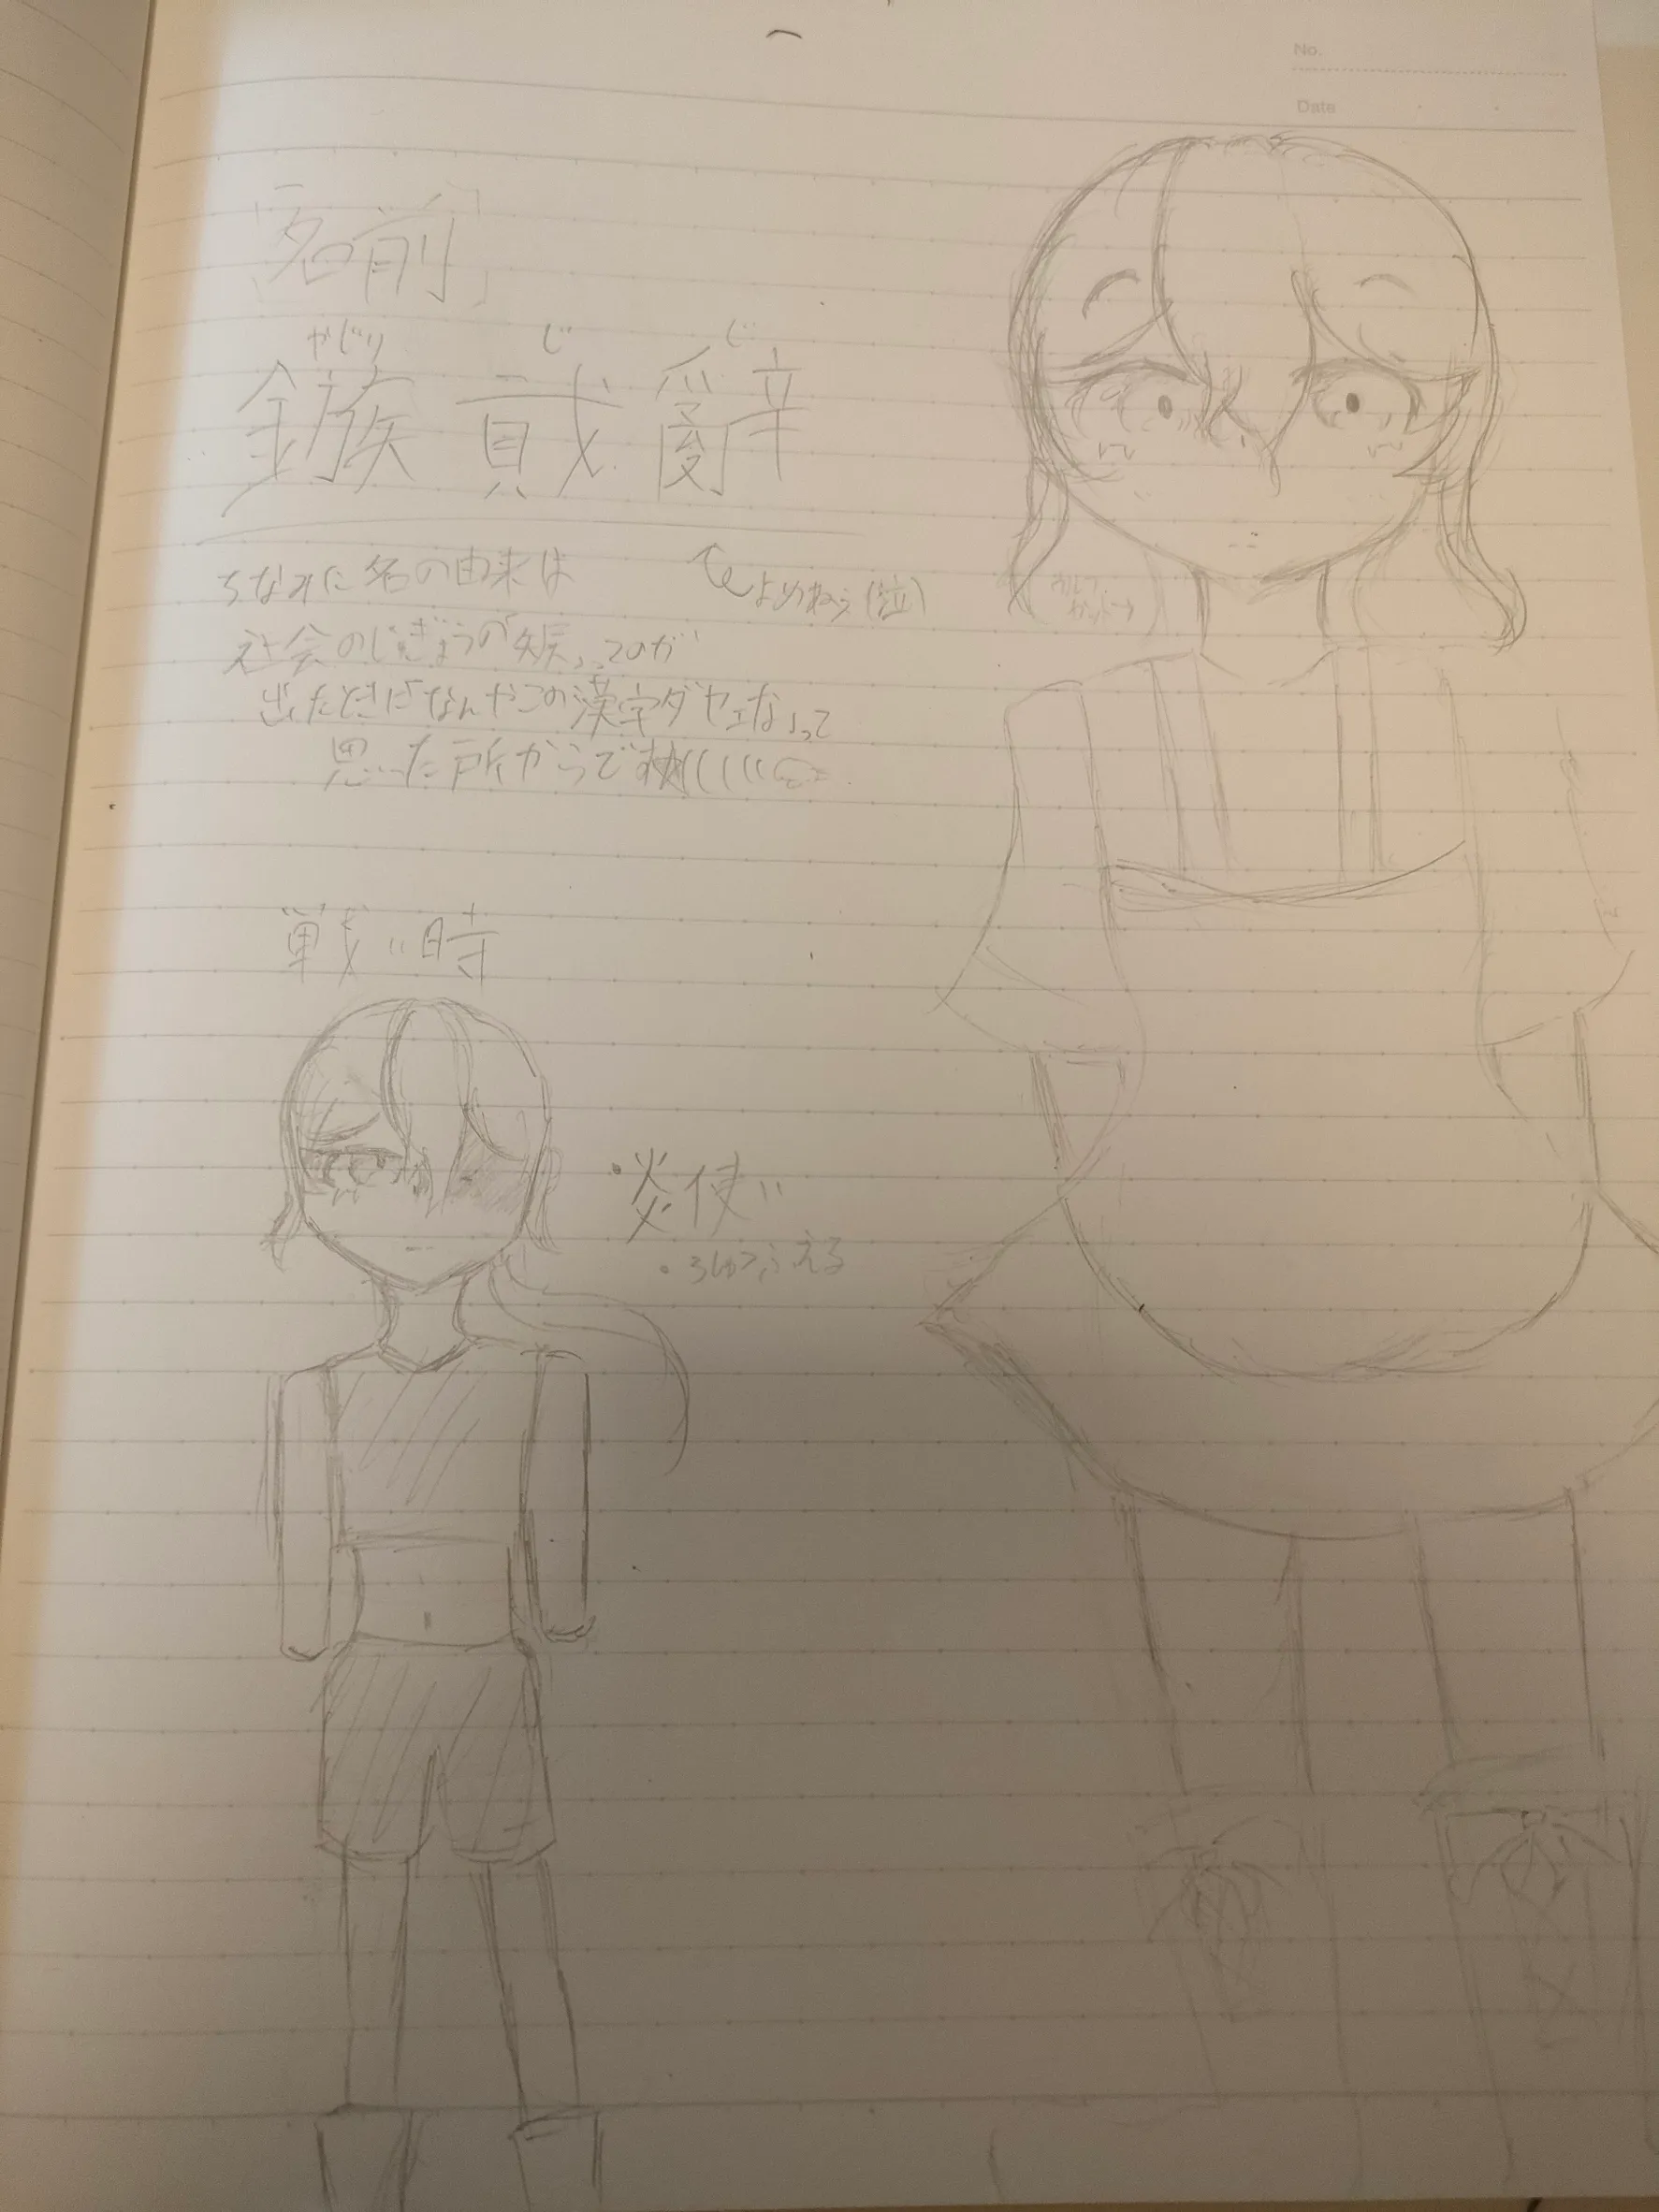 No.
Date
「名前」
やじり じ じ
鏃 貳 辭
よめねぇ(泣)
ちなみに名の由来は
社会のじぎょうの「鏃」ってのが
出たときに「なんやこの漢字ダヤェな」って
思った所からです
戦い時
・炎使い